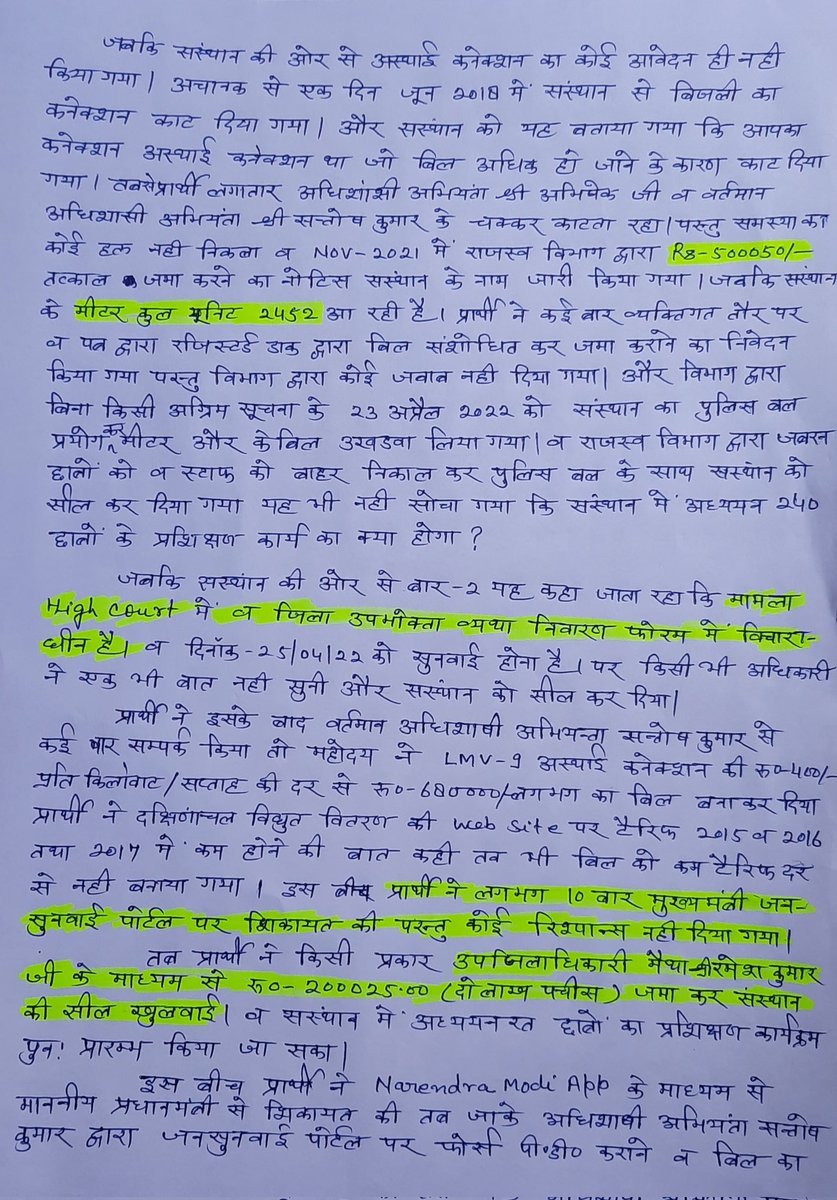 जबकि संस्थान की ओर से अस्थाई कनेक्शन का कोई आवेदन ही नही
किया गया। अचानक से एक दिन जून 2018 में संस्थान से बिजली का
कनेक्शन काट दिया गया। और संस्थान को यह बताया गया कि आपका
कनेक्शन अस्थाई कनेक्शन था जो बिल अधिक हो जाने के कारण काट दिया
गया। तबसे प्रार्थी लगातार अधिशांसी अभियंता श्री अभिषेक जी व वर्तमान
अधिशासी अभियंता श्री सन्तोष कुमार के चक्कर काटता रहा। परन्तु समस्या का
कोई हल नही निकला व NOV-2021 में राजस्व विभाग द्वारा RS-500050/-
तत्काल जमा करने का नोटिस संस्थान के नाम जारी किया गया। जबकि संस्थान
के मीटर कुल यूनिट 2452 आ रही है। प्रार्थी ने कई बार व्यक्तिगत तौर पर
व पत्र द्वारा रजिस्टर्ड डाक द्वारा बिल संशोधित कर जमा कराने का निवेदन
किया गया परन्तु विभाग द्वारा कोई जवाब नही दिया गया। और विभाग द्वारा
बिना किसी अग्रिम सूचना के 23 अप्रैल 2022 को संस्थान का पुलिस बल
प्रयोग कर मीटर और केबिल उखडवा लिया गया। व राजस्व विभाग द्वारा जबरन
छात्रों को व स्टाफ को बाहर निकाल कर पुलिस बल के साथ संस्थान को
सील कर दिया गया यह भी नही सोचा गया कि संस्थान में अध्ययन 240
छात्रों के प्रशिक्षण कार्य का क्या होगा ?
जबकि संस्थान की ओर से बार-2 यह कहा जाता रहा कि मामला
High Court में व जिला उपभोक्ता व्यथा निवारण फोरम में विचारा-
धीन है। व दिनाँक-25/04/22 को सुनवाई होना है। पर किसी भी अधिकारी
ने एक भी बात नही सुनी और संस्थान को सील कर दिया।
प्रार्थी ने इसके बाद वर्तमान अधिशाषी अभियन्ता सन्तोष कुमार से
कई बार सम्पर्क किया तो महोदय ने LMV-9 अस्थाई कनेक्शन की रू०-400/-
प्रति किलोवाट/सप्ताह की दर से रू०-680000/-लगभग का बिल बनाकर दिया
प्रार्थी ने दक्षिणांचल विद्युत वितरण की Web Site पर टैरिफ 2015 व 2016
तथा 2017 में कम होने की बात कही तब भी बिल को कम टैरिफ दर
से नही बनाया गया। इस बीच प्रार्थी ने लगभग 10 बार मुख्यमंत्री जन-
सुनवाई पोर्टल पर शिकायत की परन्तु कोई रिस्पान्स नही दिया गया।
तब प्रार्थी ने किसी प्रकार उपजिलाधिकारी मैथा-श्री रमेश कुमार
जी के माध्यम से रू०- 200025.00 (दो लाख पच्चीस) जमा कर संस्थान
की सील खुलवाई। व संस्थान में अध्ययनरत छात्रों का प्रशिक्षण कार्यक्रम
पुनः प्रारम्भ किया जा सका।
इस बीच प्रार्थी ने Narendra Modi App के माध्यम से
माननीय प्रधानमंत्री से शिकायत की तब जाके अधिशाषी अभियंता सन्तोष
कुमार द्वारा जनसुनवाई पोर्टल पर फोर्स पी०डी० कराने व बिल का